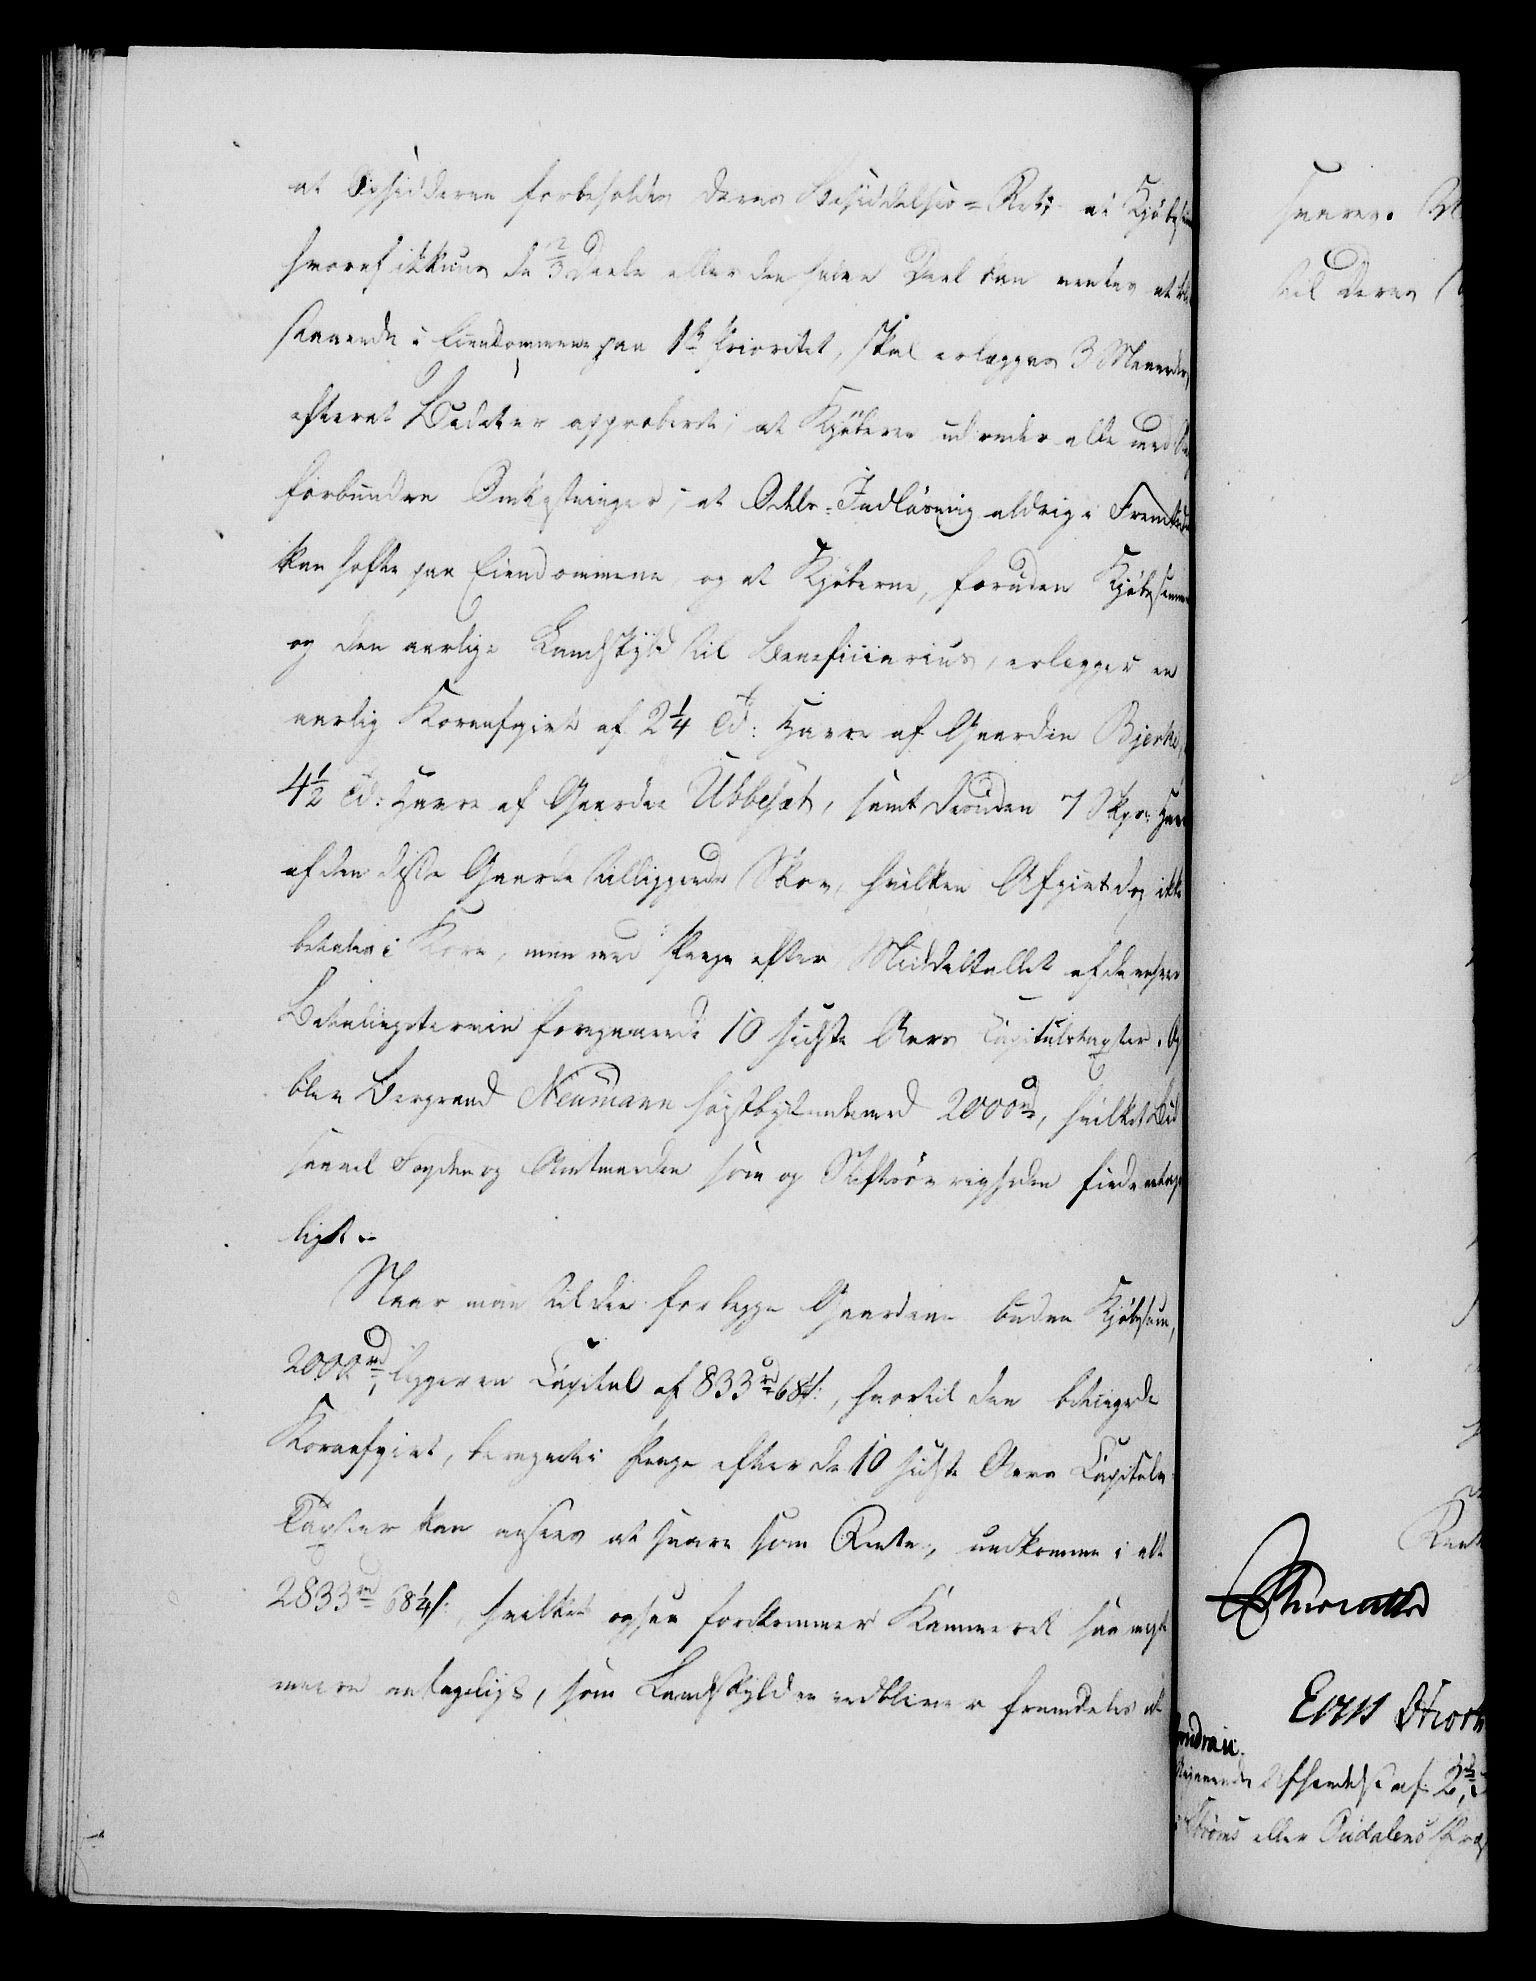 at Opsidderen forbeholdes deres Besiddelses=Ret; at Kjøbesummen
hvoraf ikkuns de 2/3 Deele eller den halve Deel kan ventes at blive
staaende i Eiendommene paa 1te Prioritet, skal erlægges 3 Maaneder
efterat Budet er approberet; at Kjøberne udreder alle med
forbundne Omkostninger; at Odels-Indløsning aldrig i Fremtiden
kan hefte paa Eiendommene, og at Kjøberne, foruden Kjøbesummen
og den aarlige Landskyld til Beneficiarius, erlægger en
aarlig Kornafgivt af 2 1/4 Td: Havre af Gaarden Bjerke,
4 1/2 Td: Havre af Gaarden Ubbesæt, samt desuden 7 Skpr: Havre
af den disse Gaarde tilliggende Skov, hvilken Afgivt dog ikke
betales i Korn, men med Penge efter Middeltallet af de enhver
Betalingstermin foregaaende 10 sidste Aars Capitulstaxter. Og
blev Bergraad Neumann høistbydende med 2000 rd, hvilket Bud
saavel Fogden og Amtmanden som og Stiftsøvrigheden finde antage
ligt.
Naar man til den for begge Gaardene budne Kjøbesum,
2000 rd, lægger en Capital af 833 rd 68 1/4 s:, hvortil den betingede
Kornafgivt, beregnet i Penge efter de 10 sidste Aars Capituls
Taxter kan ansees at svare som Rente, udkomme i alt
2833 rd 68 1/4 s:, hvilket ogsaa forekommer Kammeret saa meget
meere antageligt, som Landskylden vedbliver fremdeles at
svares.
til deres
Eers Hiort
eller Oudalens